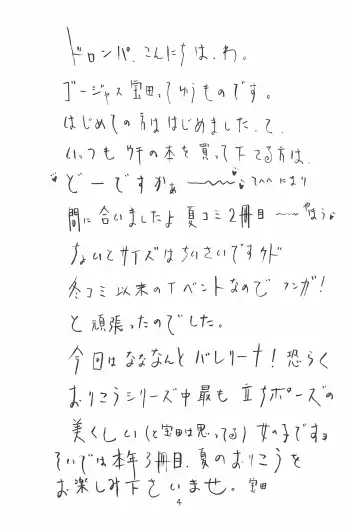 ドロンパ、こんにちは、わ。
ゴージャス宝田ってゆうものです。
はじめての方ははじめました、て、
いつもウチの本を買って下さる方は、
どーですかぁ〜〜 てへへ にまり
間に合いましたよ夏コミ2冊目〜〜 やほう♪
ちょいとサイズはちいさいですケド
冬コミ以来のイベントなので フンガ!
と頑張ったのでした。
今回はなななんとバレリーナ!恐らく
おりこうシリーズ中最も立ちポーズの
美しくしい(と宝田は思ってる)女の子です。
そいでは本年3冊目、夏のおりこうを
お楽しみ下さいませ。宝田
4